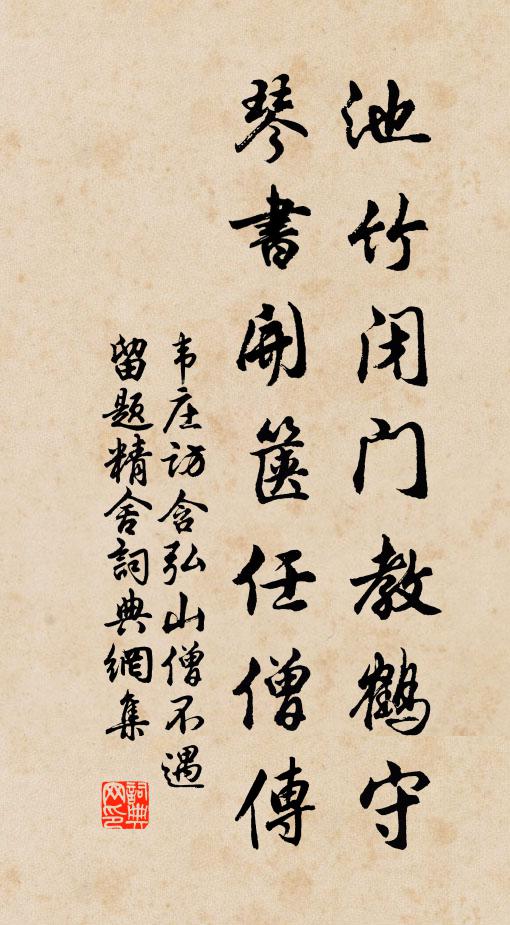 池竹闭门教鹤守
琴書開篋任僧傳
韦庄访含弘山僧不遇
留题精舍詞典網集
詞典网印